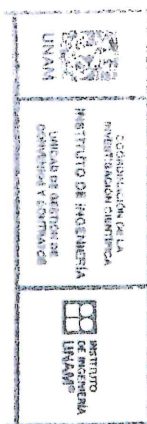 UNAM
COORDINACIÓN DE LA
INVESTIGACIÓN CIENTÍFICA
INSTITUTO DE INGENIERÍA
UNIDAD DE GESTIÓN DE
CONVENIOS Y CONTRATOS
INSTITUTO
DE INGENIERÍA
UNAM®